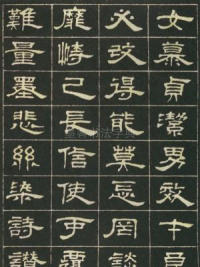 女慕貞潔男效才良
必改得能莫忘罔談
靡恃己長信使可覆
難量墨悲絲染詩讚